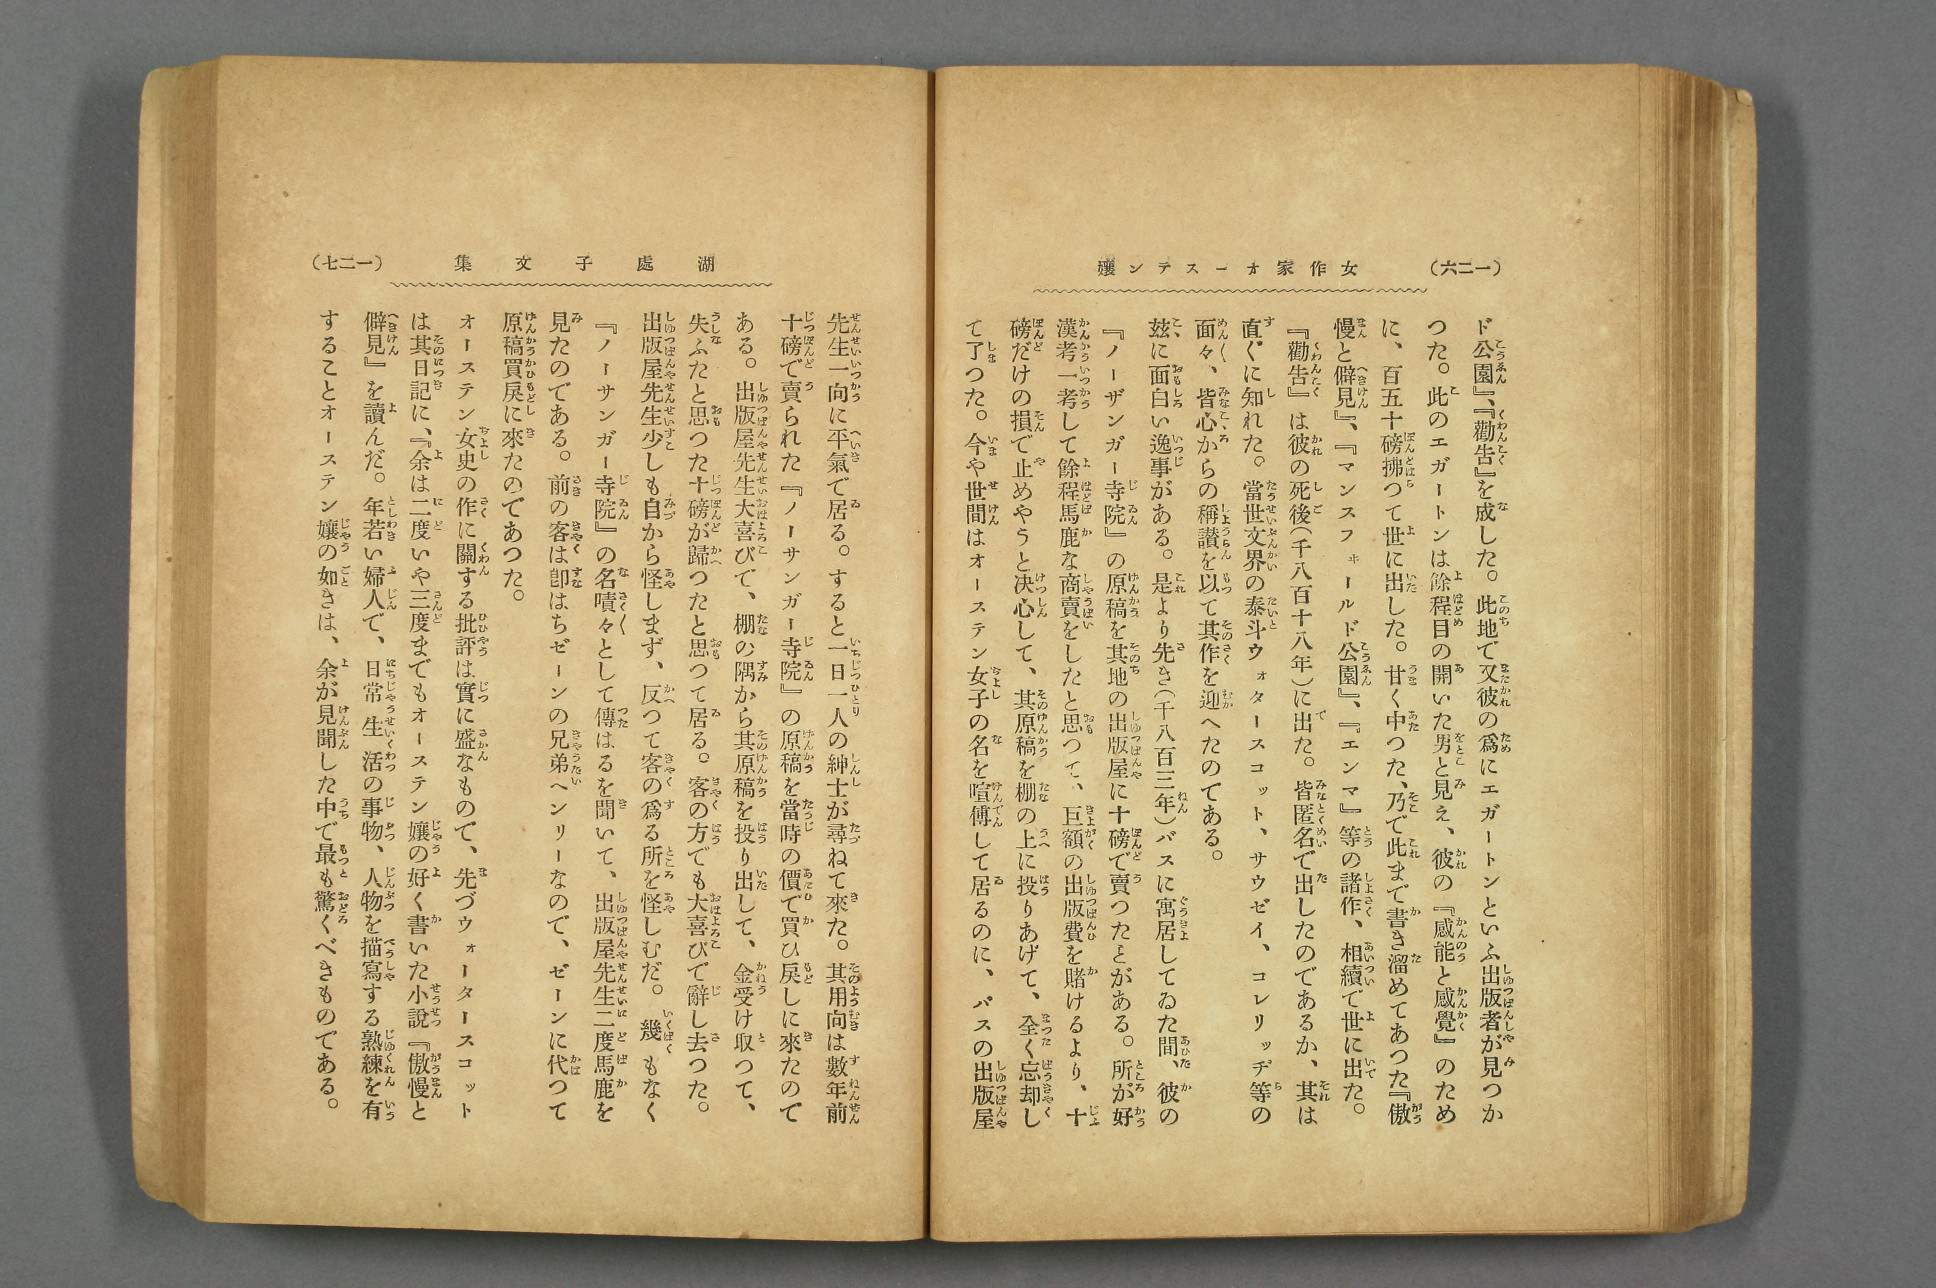 （一二六）
女作家オーステン孃
ド公園』、『勸告』を成した。此地で又彼の爲にエガートンといふ出版者が見つか
つた。此のエガートンは餘程目の開いた男と見え、彼の『感能と感覺』のため
に、百五十磅拂つて世に出した。甘く中つた、乃で此まで書き溜めてあつた『傲
慢と僻見』、『マンスフォールド公園』、『エンマ』等の諸作、相續で世に出た。
『勸告』は彼の死後（千八百十八年）に出た。皆匿名で出したのであるか、其は
直ぐに知れた。當世文界の泰斗ウォタースコット、サウゼイ、コレリッヂ等の
面々、皆心からの稱讃を以て其作を迎へたのてある。
玆に面白い逸事がある。是より先き（千八百三年）バスに寓居してゐた間、彼の
『ノーザンガー寺院』の原稿を其地の出版屋に十磅で賣つたとがある。所が好
漢考一考して餘程馬鹿な商賣をしたと思つて、巨額の出版費を賭けるより、十
磅だけの損で止めやうと决心して、其原稿を棚の上に投りあげて、全く忘却し
て了つた。今や世間はオーステン女子の名を喧傳して居るのに、バスの出版屋
湖處子文集
（一二七）
先生一向に平氣で居る。すると一日一人の紳士が尋ねて來た。其用向は數年前
十磅で賣られた『ノーサンガー寺院』の原稿を當時の價で買ひ戻しに來たので
ある。出版屋先生大喜びで、棚の隅から其原稿を投り出して、金受け取つて、
失ふたと思つた十磅が歸つたと思つて居る。客の方でも大喜びで辭し去つた。
出版屋先生少しも自から怪しまず、反つて客の爲る所を怪しむだ。幾もなく
『ノーサンガー寺院』の名嘖々として傳はるを聞いて、出版屋先生二度馬鹿を
見たのである。前の客は卽はちゼーンの兄弟ヘンリーなので、ゼーンに代つて
原稿買戾に來たのであつた。
オーステン女史の作に關する批評は實に盛なもので、先づウォータースコット
は其日記に、『余は二度いや三度までもオーステン孃の好く書いた小說『傲慢と
僻見』を讀んだ。年若い婦人で、日常生活の事物、人物を描寫する熟練を有
することオーステン孃の如きは、余が見聞した中で最も驚くべきものである。